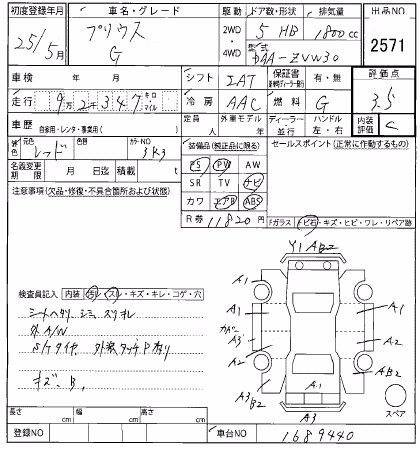 初度登録年月 車名・グレード 駆動 ドア数・形状 排気量 出品NO
25年 5月 プリウス 2WD 5 HB 1800cc 2571
G 4WD 型式 DAA-ZVW30
車検 年 月 シフト IAT 保証書 有・無 評価点
走行 9万2千347 キロ マイル 冷房 AAC 燃料 G 3.5
車歴 自家用・レンタ・事業用( ) 定員 人 外車モデル 年 ディーラー 並行 ハンドル 左・右 内装評価 C
元色 レッド 色替 カラーNO 3R3 装備品(純正品に限る) セールスポイント(正常に作動するもの)
PS PW AW
名義変更期限 月 日迄 積載 t SR TV ナビ
注意事項(欠品・修復・不具合箇所および状態) カワ エアB ABS
R券 11820円 Fガラス トビ石・キズ・ヒビ・ワレ・リペア跡
Y1 AB2
A1
検査員記入 内装 汚レ・スレ・キズ・キレ・コゲ・穴
シートヘタリ、シミ、スリキレ
外A/W
S/Tタイヤ、外装タッチP有り
キズ、B,
A1 A1
カバー
A3 A2
A2 AB2
A1
A3 B2
A3
スペア
長さ cm 幅 cm 高さ cm
登録NO 車台NO 1689440